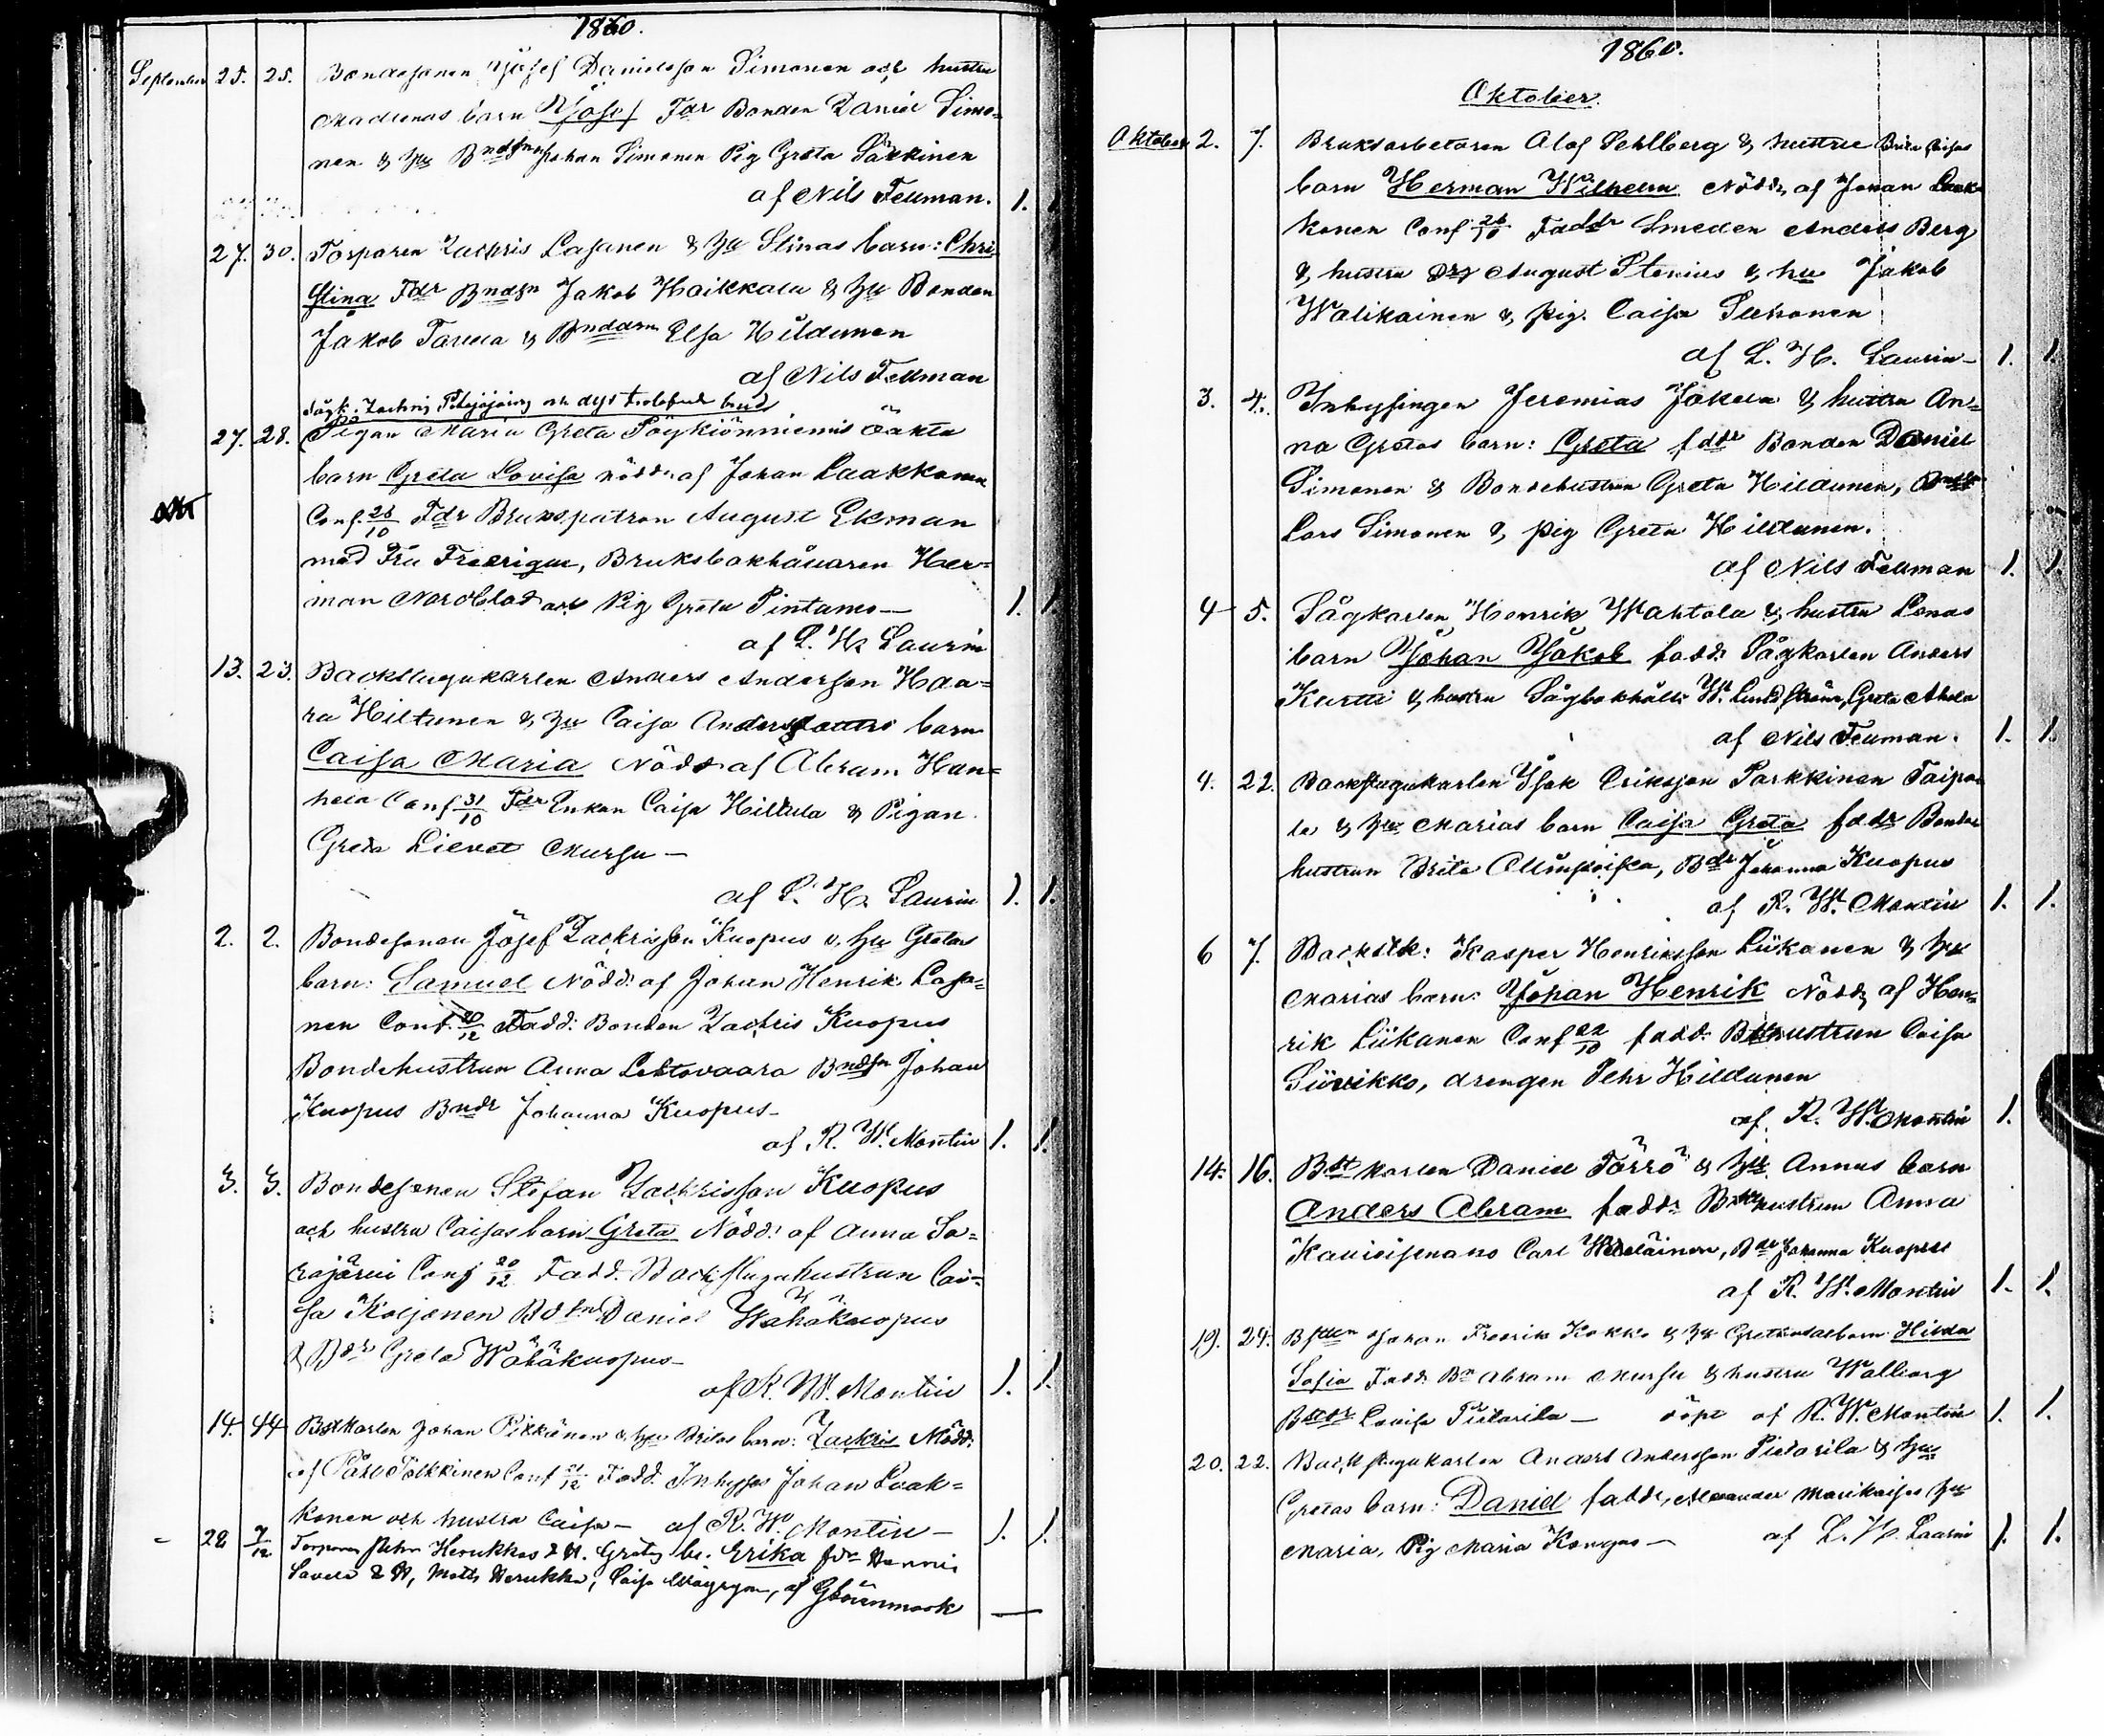 1860.
September 25. 25. Bondesonen Josef Danielsson Simonen och hustru
Madlenas barn Josef Fdr Bonden Daniel Simo-
nen & hu Bndsn Johan Simonen Pig Greta Säkkinen
af Nils Fellman. 1.
27. 30. Torparen Zachris Lasanen & hu Stinas barn: Chri
stina Fdr Bndsn Jakob Haikkala & hu Bonden
Jakob Tarula & Bnddrn Elsa Hildunen
af Nils Fellman
Sågk. Zachris
27. 28. Pigan Maria Greta Pöykiönniemis oäkta
barn Greta Lovisa nödd. af Johan Laakkonen
Conf. 28/10 Fdr Brukspatron August Ekman
med Fru Fredrique, Bruksbokhållaren Her-
man Nordblad och Pig Greta Pintamo—
1. 1.
af L. H. Laurin
13. 23. Backstugukarlen Anders Andersson Haa-
ra Hiltunen & hu Caisa Andersdotters barn
Caisa Maria Nödd af Abram Han-
hela Conf 31/10 Fdr Enkan Caisa Hiltula & Pigan
Greta Lievet Mursu —
af L. H. Laurin 1. 1.
2. 2. Bondesonen Josef Zachrisson Kuopus & hu Gretas
barn: Samuel Nödd. af Johan Henrik Lasa-
nen Conf. 20/12 Fadd. Bonden Zachris Kuopus
Bondehustrun Anna Lehtovaara Bndsn Johan
Kuopus Bndr Johanna Kuopus—
af R. W. Montin 1. 1.
3. 3. Bondesonen Stefan Zachrisson Kuopus
och hustru Caisas barn Greta Nödd. af Anna So-
rajärvi Conf 20/12 Fadd. Backstuguhustrun Cai-
sa Koljonen Daniel Wähäkuopus
& Bdr Greta Wähäkuopus—
af R. W. Montin 1. 1.
14. 44 Bstkarlen Johan Pikkänen & hu Britas barn: Zachris Nödd:
af Påhl Pölkkinen Conf 21/12 Fadd. Inhyses Johan Laak-
konen och hustru Caisa — af R. W. Montin — 1. 1.
28 7/12 Torparen Petter Herukkas & H. Gretas br. Erika fdr Henrik
& H, Matts Herukka, Caisa af
1860.
Oktober.
Oktober 2. 7. Bruksarbetaren Olof Sehlberg & hustru Brita Caisas
barn Herman Wilhelm Nödd. af Johan Laak-
konen Conf 28/10 Faddr Smeden Anders Berg
& hustru August Stenius & hu Jakob
Walikainen & pig. Caisa Suhonen
af L. H. Laurin— 1. 1.
3. 4. Inhysingen Jeremias Jokela & hustru An-
na Gretas barn: Greta fddr Bonden Daniel
Simonen & Bondehustrun Greta Hildunen,
Lars Simonen & pig Greta Hildunen.
af Nils Fellman 1. 1.
4 5. Sågkarlen Henrik Wahtola & hustru Lenas
barn Johan Jakob fadd. Sågkarlen Anders
Kurtti & hustru Sågbokhåll. W. Lundström, Greta Ahola
af Nils Fellman. 1. 1.
4. 22. Backstugukarlen Isak Eriksson Parkkinen Taipa-
le & hu Marias barn Caisa Greta faddr Bonde
hustrun Brita Bdr Johanna Kuopus
af R. W. Montin 1. 1.
6 7. Backstk: Kasper Henriksson Liikanen & hu
Marias barn: Johan Henrik Nödd. af Hen-
rik Liikanen Conf 22/10 fadd. Bhustrun Caisa
Siivikko, drengen Pehr Hildunen
af R. W. Montin 1.
14. 16. Bstkarlen Daniel Törrö & hu Annas barn
Anders Abram fadd. hustrun Anna
Carl Bdr Johanna Kuopus
af R. W. Montin 1. 1.
19. 24. Johan Fredrik Kokko & hu barn Hilda
Sofia Fadd. Abram Mursu & hustru Walborg
Lovisa Pietarila — döpt af R. W. Montin 1. 1.
20. 22. Backstugukarlen Anders Andersson Pietarila & hu
Gretas barn: Daniel fadde, Alexander Marikaisas hu
Maria, Pig Maria Kangas — af L. H. Laurin 1. 1.